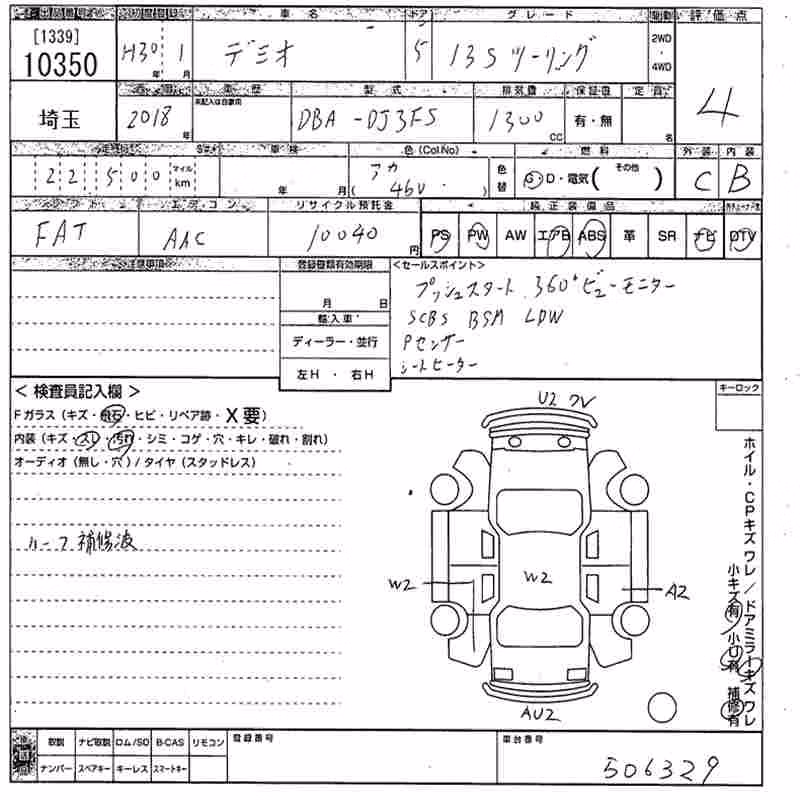 出品番号 初度登録 車名 ドア グレード 駆動 評価点
[1339]
10350 H30年 1月 デミオ 5 13Sツーリング 2WD・4WD 4
車歴 型式 排気量 保証書 定員
埼玉 2018年 未記入は自家用 DBA-DJ3FS 1300CC 有・無 名
車検 色(Col.No) 燃料 外装 内装
22500 マイル km 年 月 アカ (46V) 色替 G・D・電気( その他 ) C B
シフト エアコン リサイクル預託金 純正装備品
FAT AAC 10040円 PS PW AW エアB ABS 革 SR ナビ DTV
注意事項 登録書類有効期限 <セールスポイント>
月 日 プッシュスタート 360°ビューモニター
輸入車 SCBS BSM LDW
ディーラー・並行 Pセンサー
左H・右H シートヒーター
<検査員記入欄> キーロック
Fガラス(キズ・飛石・ヒビ・リペア跡・X要)
内装(キズ・スレ・汚れ・シミ・コゲ・穴・キレ・破れ・割れ)
オーディオ(無し・穴)/タイヤ(スタッドレス)
ルーフ補修波
U2 ワレ
W2 W2 A2
AU2
ホイル・CPキズワレ/ドアミラーキズワレ
小キズ有 小U有 補修有
取説 ナビ取説 ロム/SD B-CAS リモコン 登録番号 車台番号
ナンバー スペアキー キーレス スマートキー 506329